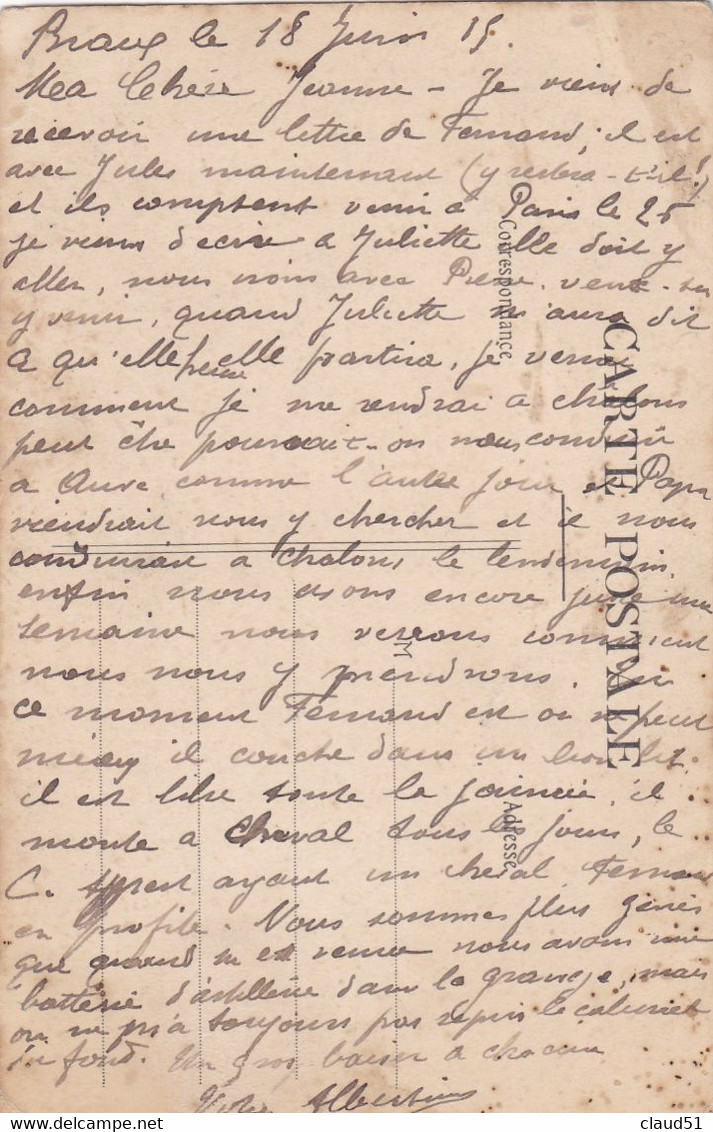 Braux le 18 Juin 15.
Ma Chère Jeanne - Je viens de
recevoir une lettre de Fernand, il est
avec Jules maintenant (y restera-t-il!)
et ils comptent venir à Paris le 25
je viens d'écrire à Juliette elle doit y
aller, nous irons avec Pierre. veux-tu
y venir, quand Juliette m'aura dit
à qu'elle heure elle partira, je verrai
comment je me rendrai à chalons
peut être pourrait-on nous conduire
à Auve comme l'autre jour et Papa
viendrait nous y chercher et il nous
conduirait à chalons le lendemain
enfin nous avons encore juste une
semaine nous verrons comment
nous nous y prendrons. En
ce moment Fernand est on ne peut
mieux il couche dans un bon lit
il est libre toute la journée, il
monte à cheval tous les jours, le
C. ayant un cheval Fernand
en profite. Nous sommes plus gênés
que quand tu es venue nous avons une
batterie d'artillerie dans la grange, mais
on ne m'a toujours pas repris le cabinet
du fond. Un gros baiser à chacun
Votre Albertine
CARTE POSTALE
Correspondance
Adresse
claud51